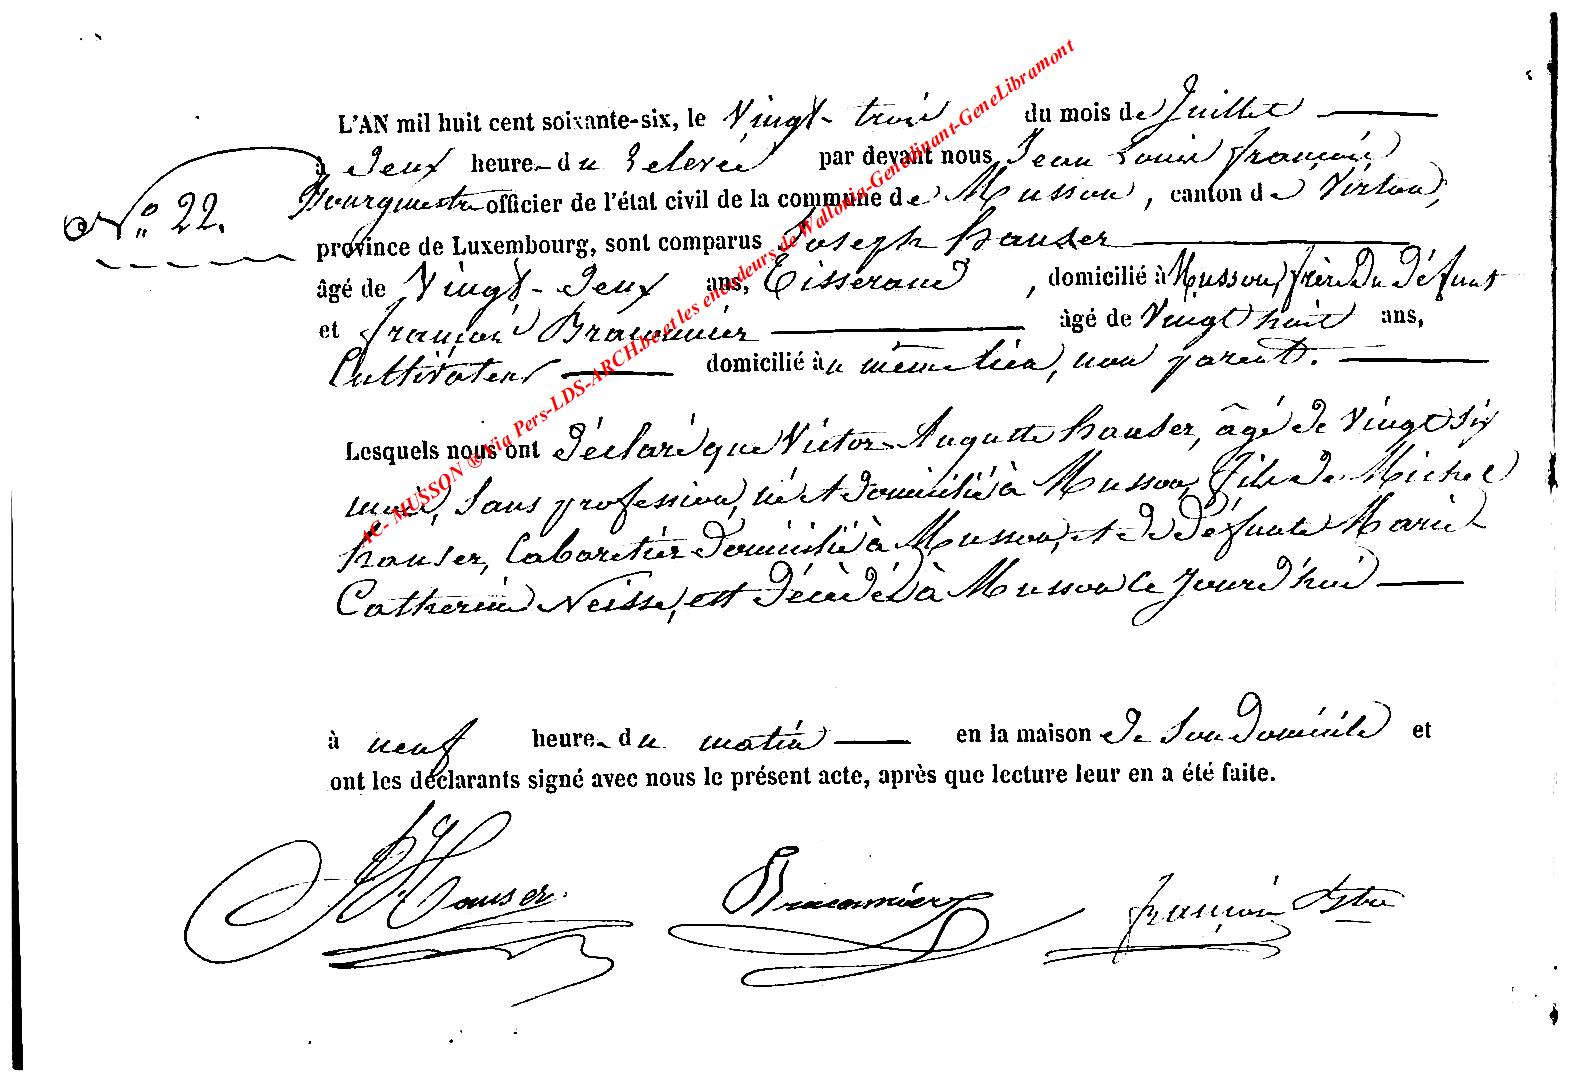 L'AN mil huit cent soixante-six, le Vingt-trois du mois de Juillet
à Deux heure du relevée par devant nous Jean Louis François
N° 22. Bourgmestre officier de l'état civil de la commune de Musson, canton de Virton,
province de Luxembourg, sont comparus Joseph hauser
âgé de Vingt-Deux ans, Tisserand, domicilié à Musson, frère Du Défunt
et françois Braconnier âgé de Vingt huit ans,
Cultivateur domicilié au même lieu, non parent.
Lesquels nous ont Déclaré que Victor Auguste hauser, âgé de Vingt Six
mois, Sans profession, né et domicilié à Musson, fils de Michel
hauser, Cabaretier Domicilié à Musson, et de Défunte Marie
Catherine Neisse, est Décédé à Musson ce jourd'hui
à neuf heure du matin en la maison de Son Domicile et
ont les déclarants signé avec nous le présent acte, après que lecture leur en a été faite.
J Hauser. Braconnier François Bstre
4C- MUSSON ® Via Pers-LDS-ARCH.be et les encodeurs de Wallonia-Genedinant-GeneLibramont